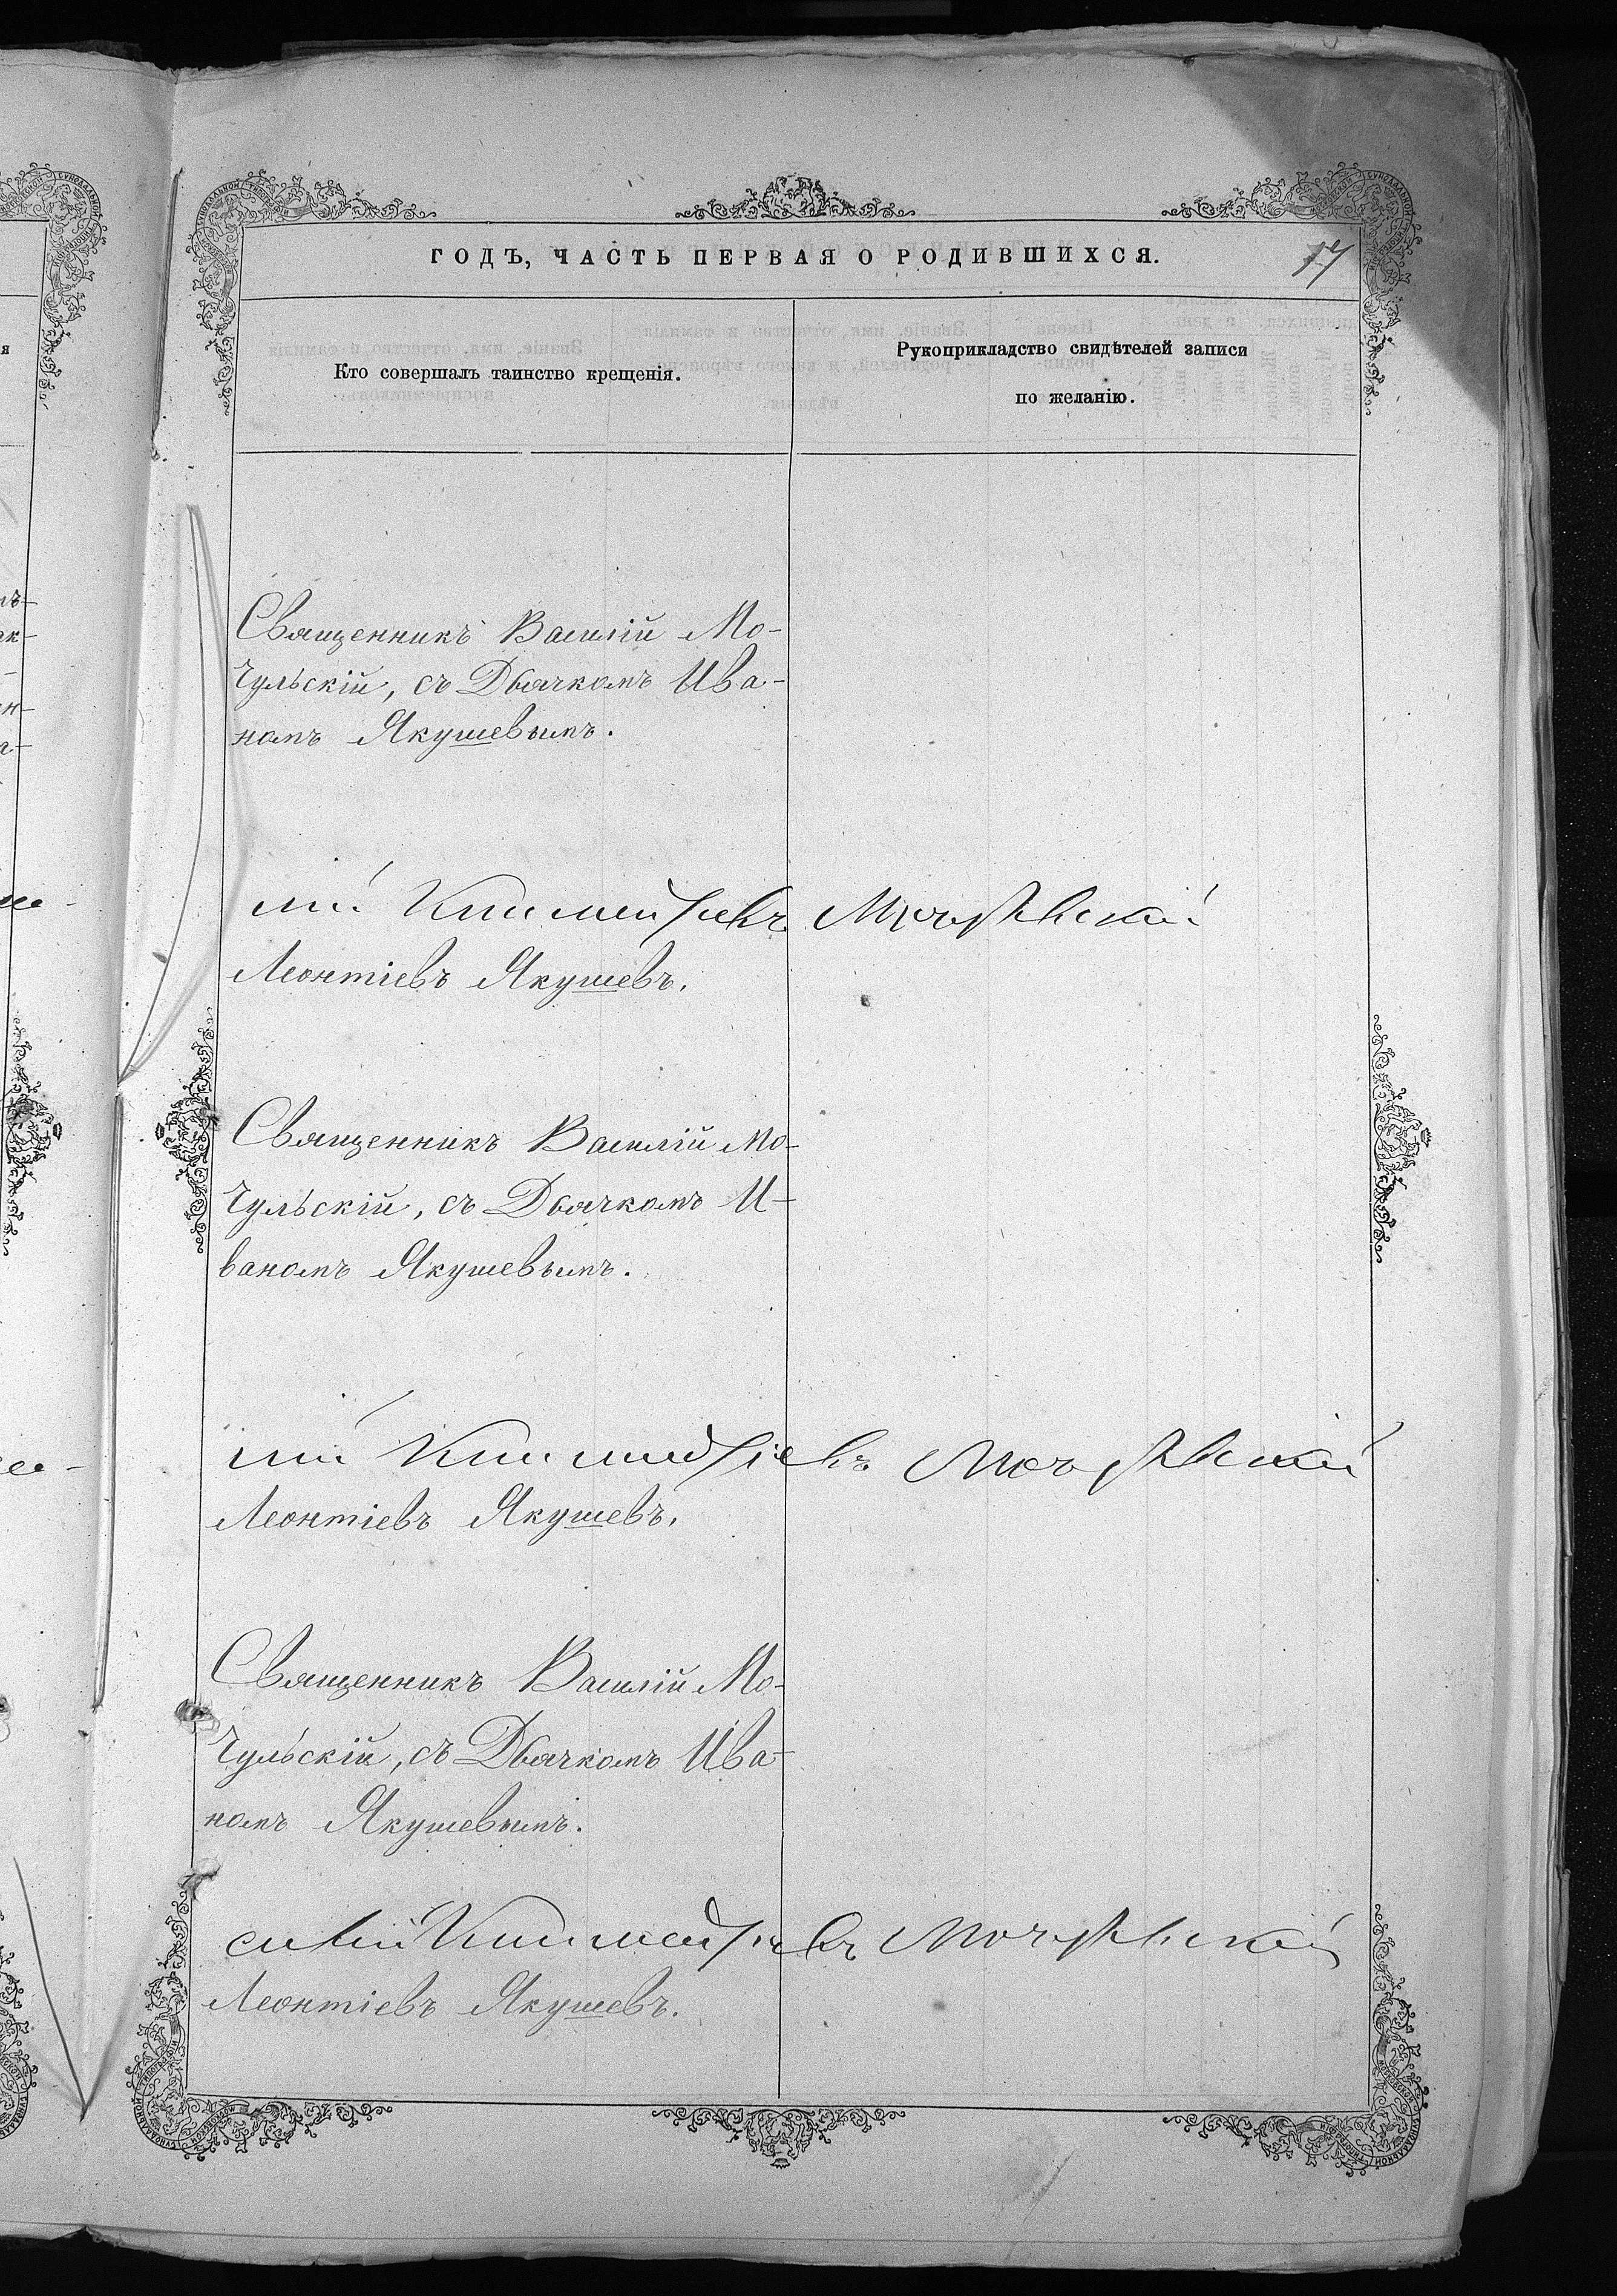 ГОДЪ, ЧАСТЬ ПЕРВАЯ О РОДИВШИХСЯ.
Кто совершалъ таинство крещенія.
Рукоприкладство свидѣтелей записи
по желанію.
Священникъ Василій Мо-
чульскій, съ Дьячкомъ Ива-
номъ Якушевымъ.
лій Мочульскій
Леонтіевъ Якушевъ.
Священникъ Василій Мо-
чульскій, съ Дьячкомъ И-
ваномъ Якушевымъ.
лій Мочульскій
Леонтіевъ Якушевъ.
Священникъ Василій Мо-
чульскій, съ Дьячкомъ Ива-
номъ Якушевымъ.
силій Мочульскій
Леонтіевъ Якушевъ.